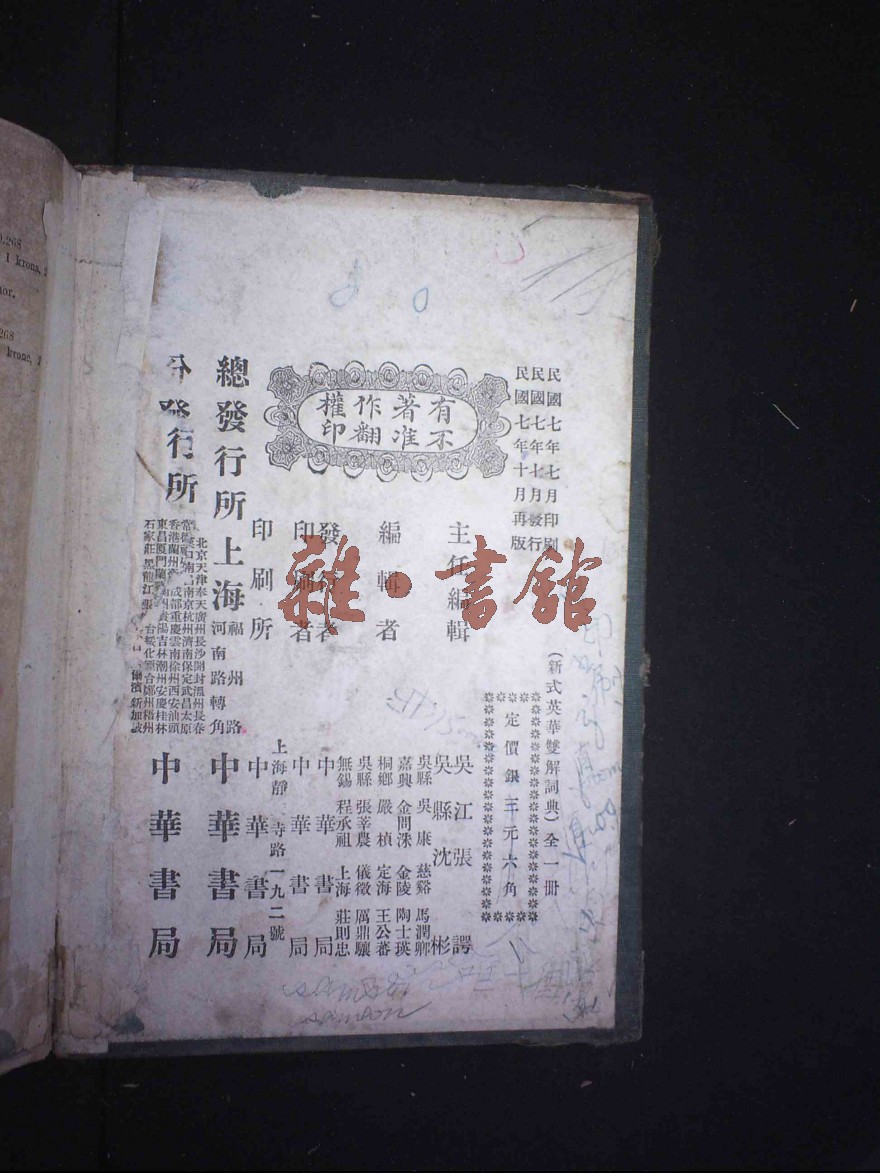 民國七年七月印刷
民國七年七月發行
民國七年十月再版
(新式英華雙解詞典)全一冊
定價銀三元六角
有不
著准
作翻
權印
主任編輯
吳江張諤
吳縣沈彬
編輯者
吳縣吳康 慈谿馬潤卿
嘉興金問洙 金陵陶士瑛
桐鄉嚴楨 定海王公蕃
吳縣張莘農 儀徵厲鼎驤
無錫程承祖 上海莊則忠
發行者 中華書局
印刷者 中華書局
印刷所 上海靜 寺路一九二號 中華書局
總發行所 上海福州路河南路轉角 中華書局
分發行所
北京天津奉天廣州長沙開封溫州長春
南京杭州濟南保定武昌太原
香港蘭州 成都重慶雲南徐州西安汕頭
東昌廈門 貴陽吉林潮州安慶桂林
石家莊黑龍江張 台綏化 鄭州梧州
爾濱新加坡
中華書局
0.268
1 krona.
268
krone,
samson
雜·書館